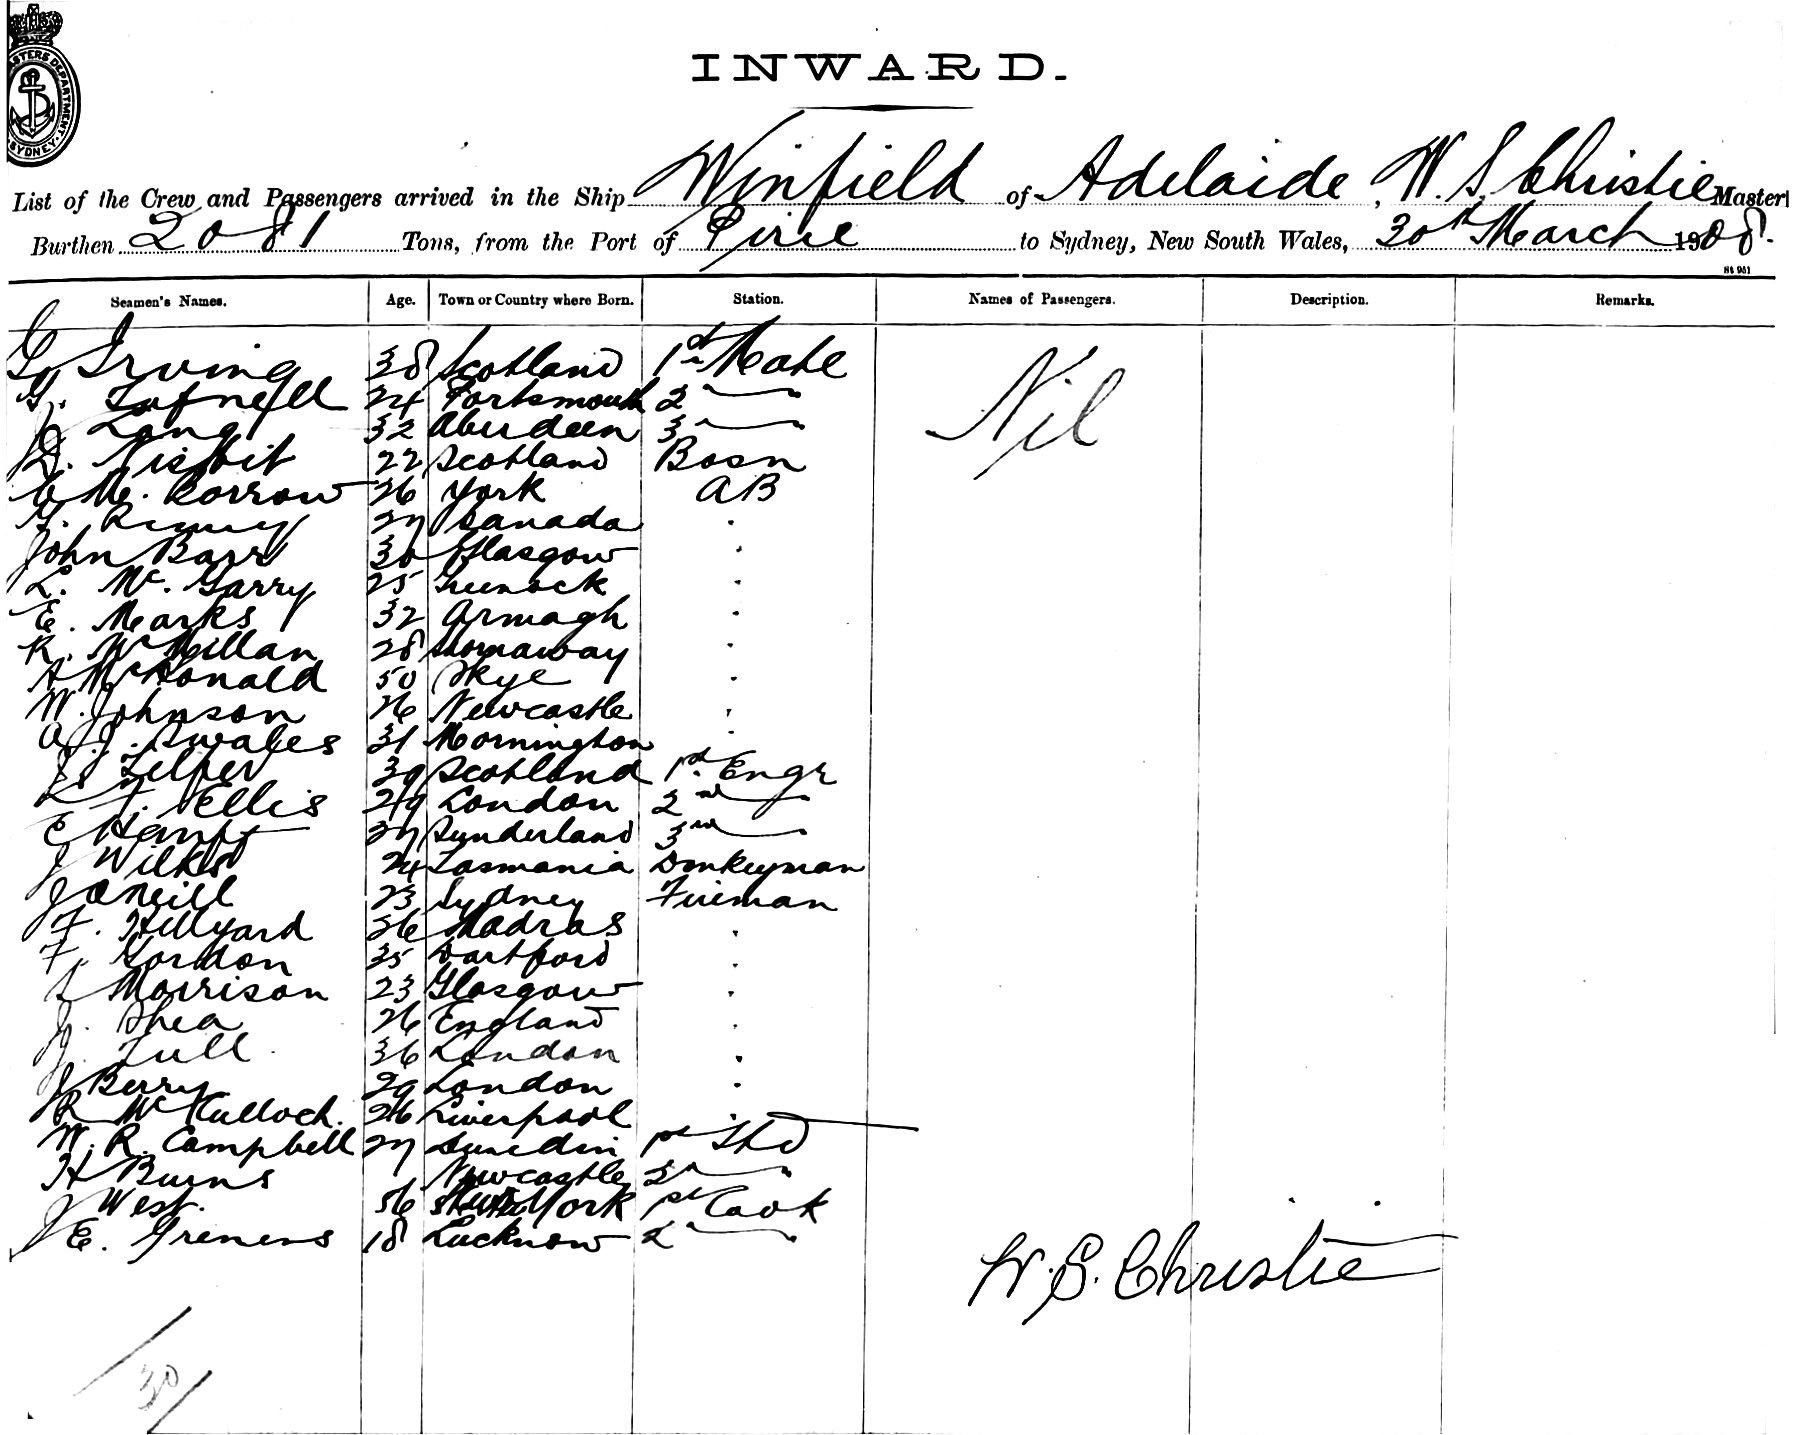 MASTERS DEPARTMENT SYDNEY
INWARD.
List of the Crew and Passengers arrived in the Ship Winfield of Adelaide, W. S. Christie Master
Burthen 2081 Tons, from the Port of Pirie to Sydney, New South Wales, 30th March 1908.
St 951
Seamen's Names. Age. Town or Country where Born. Station. Names of Passengers. Description. Remarks.
G. Irving 38 Scotland 1st Mate Nil
G. Tufnell 24 Portsmouth 2
J. Lang 32 Aberdeen 3
D. Nisbit 22 Scotland Bosn
C Mc. Corrow 26 York AB
27 Canada "
John Barr 30 Glasgow "
L. Mc. Garry 25 Greenock "
E. Marks 32 Armagh "
R. McMillan 28 Stornaway "
A McDonald 50 Skye "
W. Johnson 26 Newcastle "
A. J. Swales 31 Mornington "
J. Telfer 39 Scotland 1st Engr
T. Ellis 29 London 2nd
E Hempt 37 Sunderland 3rd
J Wilks 24 Tasmania Donkeyman
J ONeill 23 Sydney Fireman
F. Hillyard 36 Madras "
F. Gordon 35 Dartford "
Morrison 23 Glasgow "
J. Shea 26 England "
J. Tull 36 London "
J Berry 29 London "
R McCulloch. 26 Liverpool "
W. R. Campbell 27 Dunedin 1st Std
H Burns Newcastle 2n
J West. 56 York 1st Cook
J E. Grenens 18 Lucknow 2
W. S. Christie
30